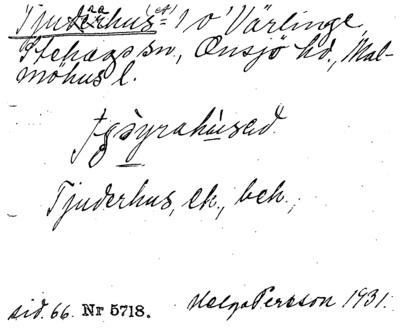 Tjuderhus(et) 1 o' Värlinge,
Stehags sn, Onsjö hd., Mal-
möhus l.
Tjuderhus, ek., bek.,
sid. 66. Nr 5718. Helga Persson 1931.